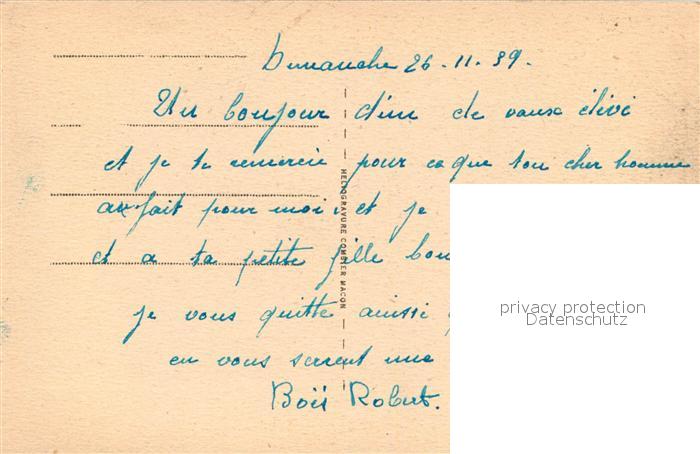 Dimanche 26.11.39.
Un bonjour d'un de vause élivé
et je te remercie pour ce que ton cher homme
a fait pour moi, et je
et a ta petite fille bon
je vous quitte aussi
en vous serrent une
Robert.
HELIOGRAVURE COMBIER MACON
privacy protection
Datenschutz